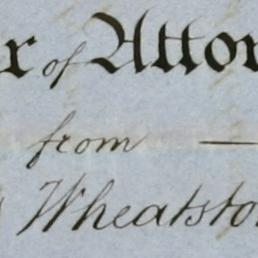 r of Attor
from —
Wheatsto